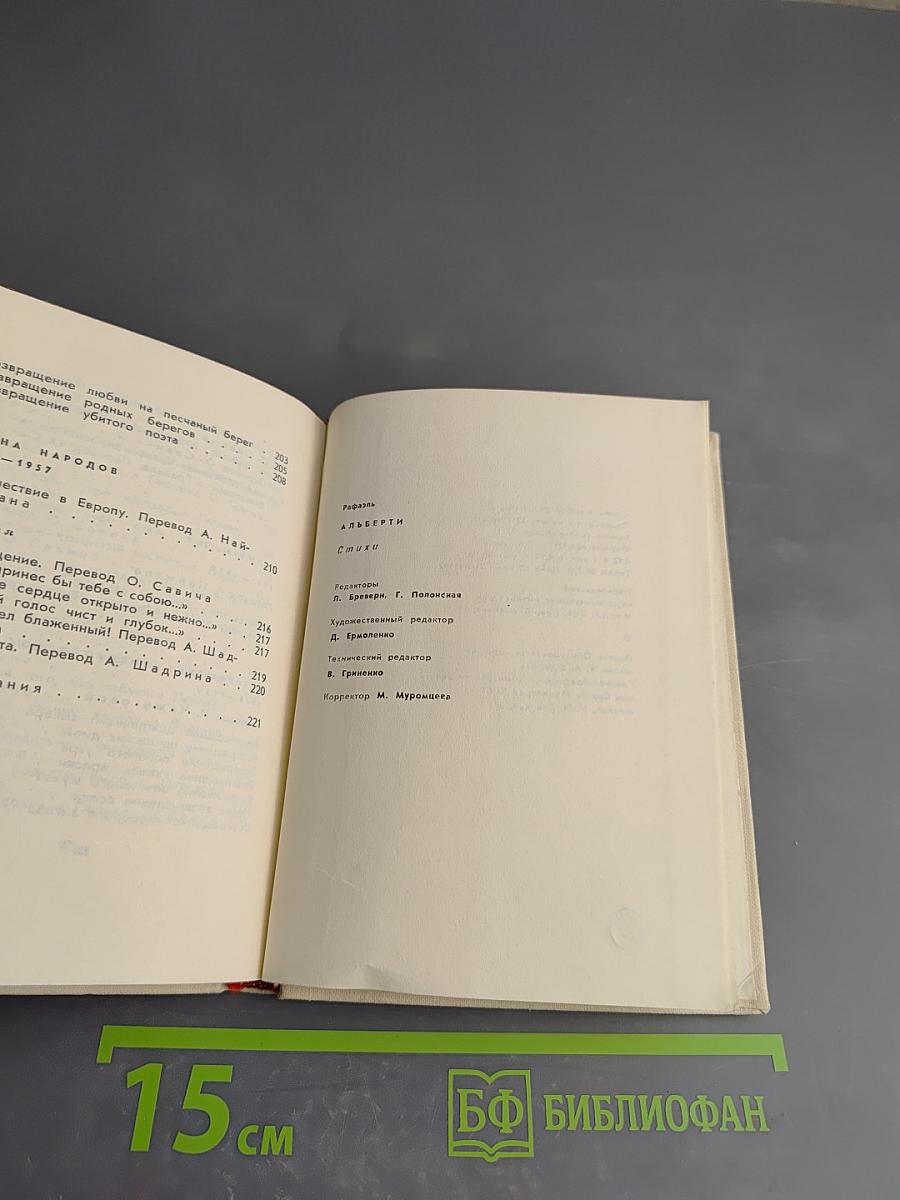 звращение любви на песчаный берег . 203
вращение родных берегов . . . . . 205
вращение убитого поэта . . . . . . 208
НА НАРОДОВ
—1957
ествие в Европу. Перевод А. Най-
ана . . . . . . . . . . . . . 210
ение. Перевод О. Савича
ринес бы тебе с собою...» . . . 216
е сердце открыто и нежно...» . . 217
й голос чист и глубок...» . . . 217
ел блаженный! Перевод А. Шад-
. . . . . . . . . . . . . 219
та. Перевод А. Шадрина . . 220
ания . . . . . . . . . . . 221
Рафаэль
АЛЬБЕРТИ
Стихи
Редакторы
Л. Бреверн, Г. Полонская
Художественный редактор
Д. Ермоленко
Технический редактор
В. Гриненко
Корректор М. Муромцева
15 см
БФ БИБЛИОФАН